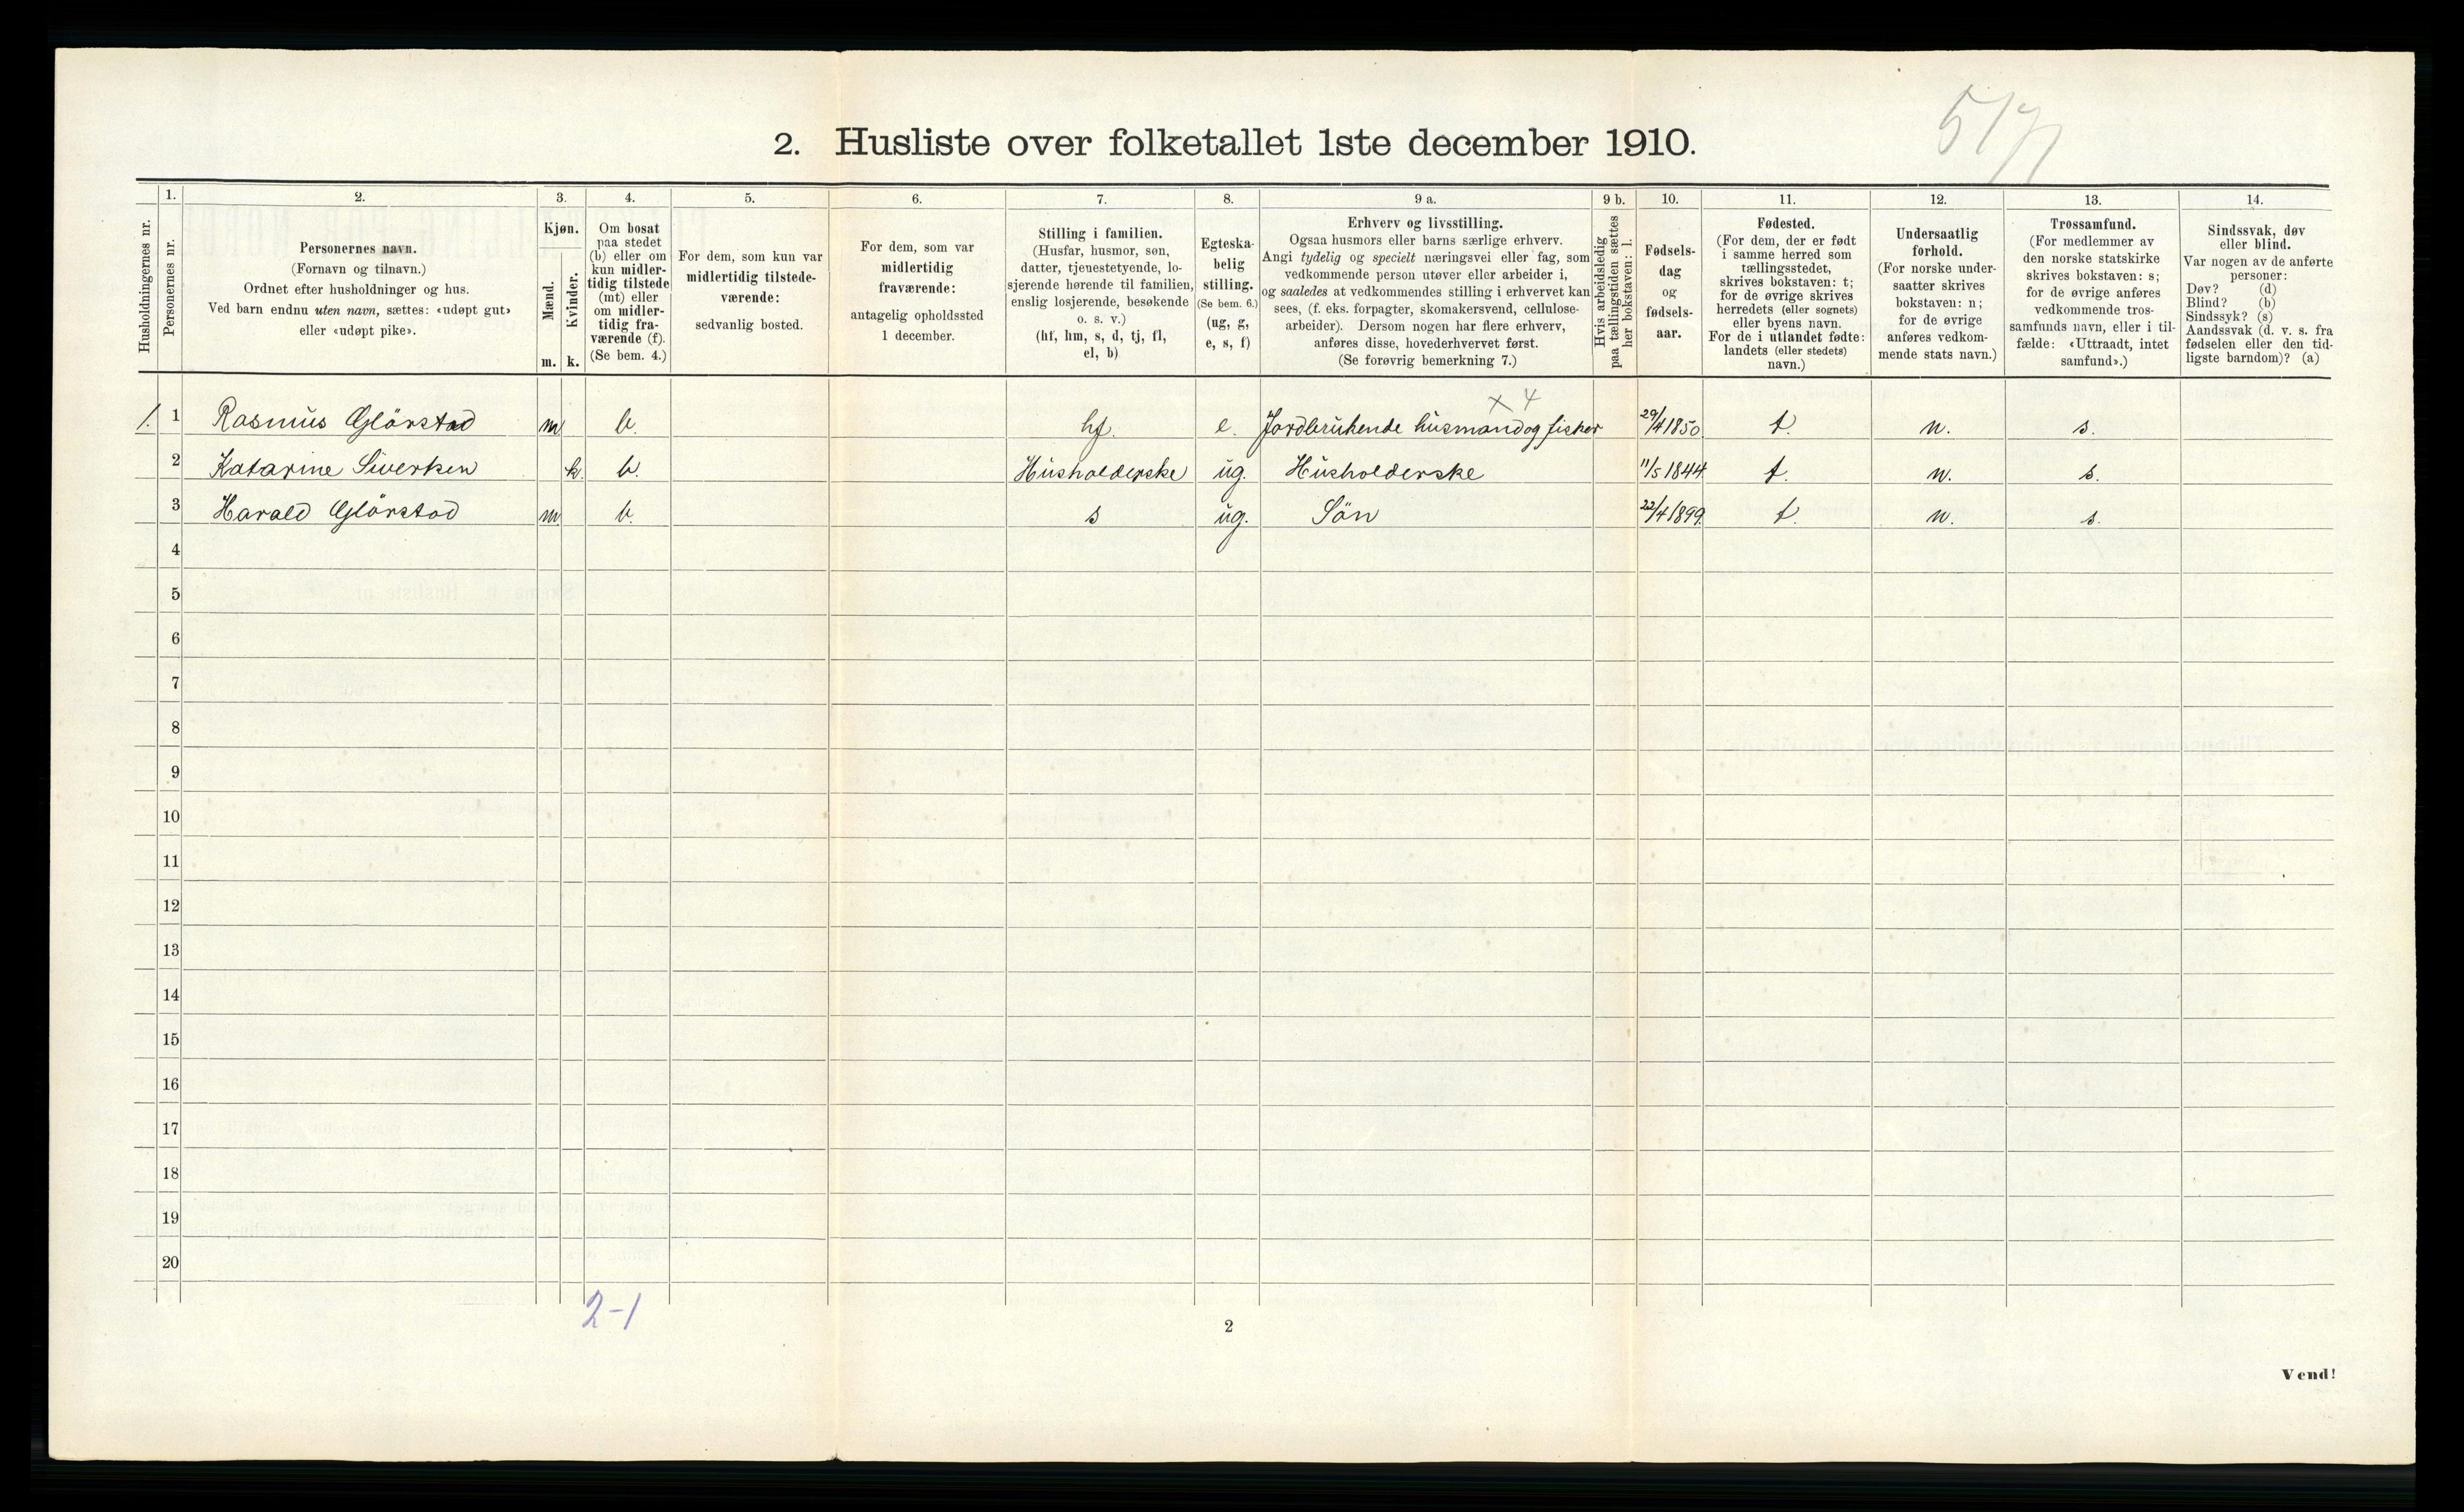 2. Husliste over folketallet 1ste december 1910.
Husholdningernes nr.
1.
Personernes nr.
2.
Personernes navn.
(Fornavn og tilnavn.)
Ordnet efter husholdninger og hus.
Ved barn endnu uten navn, sættes: «udøpt gut»
eller «udøpt pike».
3.
Kjøn.
Mænd.
Kvinder.
m. k.
4.
Om bosat
paa stedet
(b) eller om
kun midler-
tidig tilstede
(mt) eller
om midler-
tidig fra-
værende (f).
(Se bem. 4.)
5.
For dem, som kun var
midlertidig tilstede-
værende:
sedvanlig bosted.
6.
For dem, som var
midlertidig
fraværende:
antagelig opholdssted
1 december.
7.
Stilling i familien.
(Husfar, husmor, søn,
datter, tjenestetyende, lo-
sjerende hørende til familien,
enslig losjerende, besøkende
o. s. v.)
(hf, hm, s, d, tj, fl,
el, b)
8.
Egteska-
belig
stilling.
(Se bem. 6.)
(ug, g,
e, s, f)
9 a.
Erhverv og livsstilling.
Ogsaa husmors eller barns særlige erhverv.
Angi tydelig og specielt næringsvei eller fag, som
vedkommende person utøver eller arbeider i,
og saaledes at vedkommendes stilling i erhvervet kan
sees, (f. eks. forpagter, skomakersvend, cellulose-
arbeider). Dersom nogen har flere erhverv,
anføres disse, hovederhvervet først.
(Se forøvrig bemerkning 7.)
9 b.
Hvis arbeidsledig
paa tællingstiden sættes
her bokstaven: l.
10.
Fødsels-
dag
og
fødsels-
aar.
11.
Fødested.
(For dem, der er født
i samme herred som
tællingsstedet,
skrives bokstaven: t;
for de øvrige skrives
herredets (eller sognets)
eller byens navn.
For de i utlandet fødte:
landets (eller stedets)
navn.)
12.
Undersaatlig
forhold.
(For norske under-
saatter skrives
bokstaven: n;
for de øvrige
anføres vedkom-
mende stats navn.)
13.
Trossamfund.
(For medlemmer av
den norske statskirke
skrives bokstaven: s;
for de øvrige anføres
vedkommende tros-
samfunds navn, eller i til-
fælde: «Uttraadt, intet
samfund».)
14.
Sindssvak, døv
eller blind.
Var nogen av de anførte
personer:
Døv? (d)
Blind? (b)
Sindssyk? (s)
Aandssvak (d. v. s. fra
fødselen eller den tid-
ligste barndom)? (a)
x 4
1. 1 Rasmus Glörstad m b. hf. e. Jordbrukende husmand og fisker 29/4 1850 t. n. s.
2 Katarine Siverksen k. b. Husholderske ug. Husholderske 11/5 1844 t. n. s.
3 Harald Glörstad m b. s ug. Sön 22/4 1899. t. n. s.
4
5
6
7
8
9
10
11
12
13
14
15
16
17
18
19
20
2-1
2
Vend!